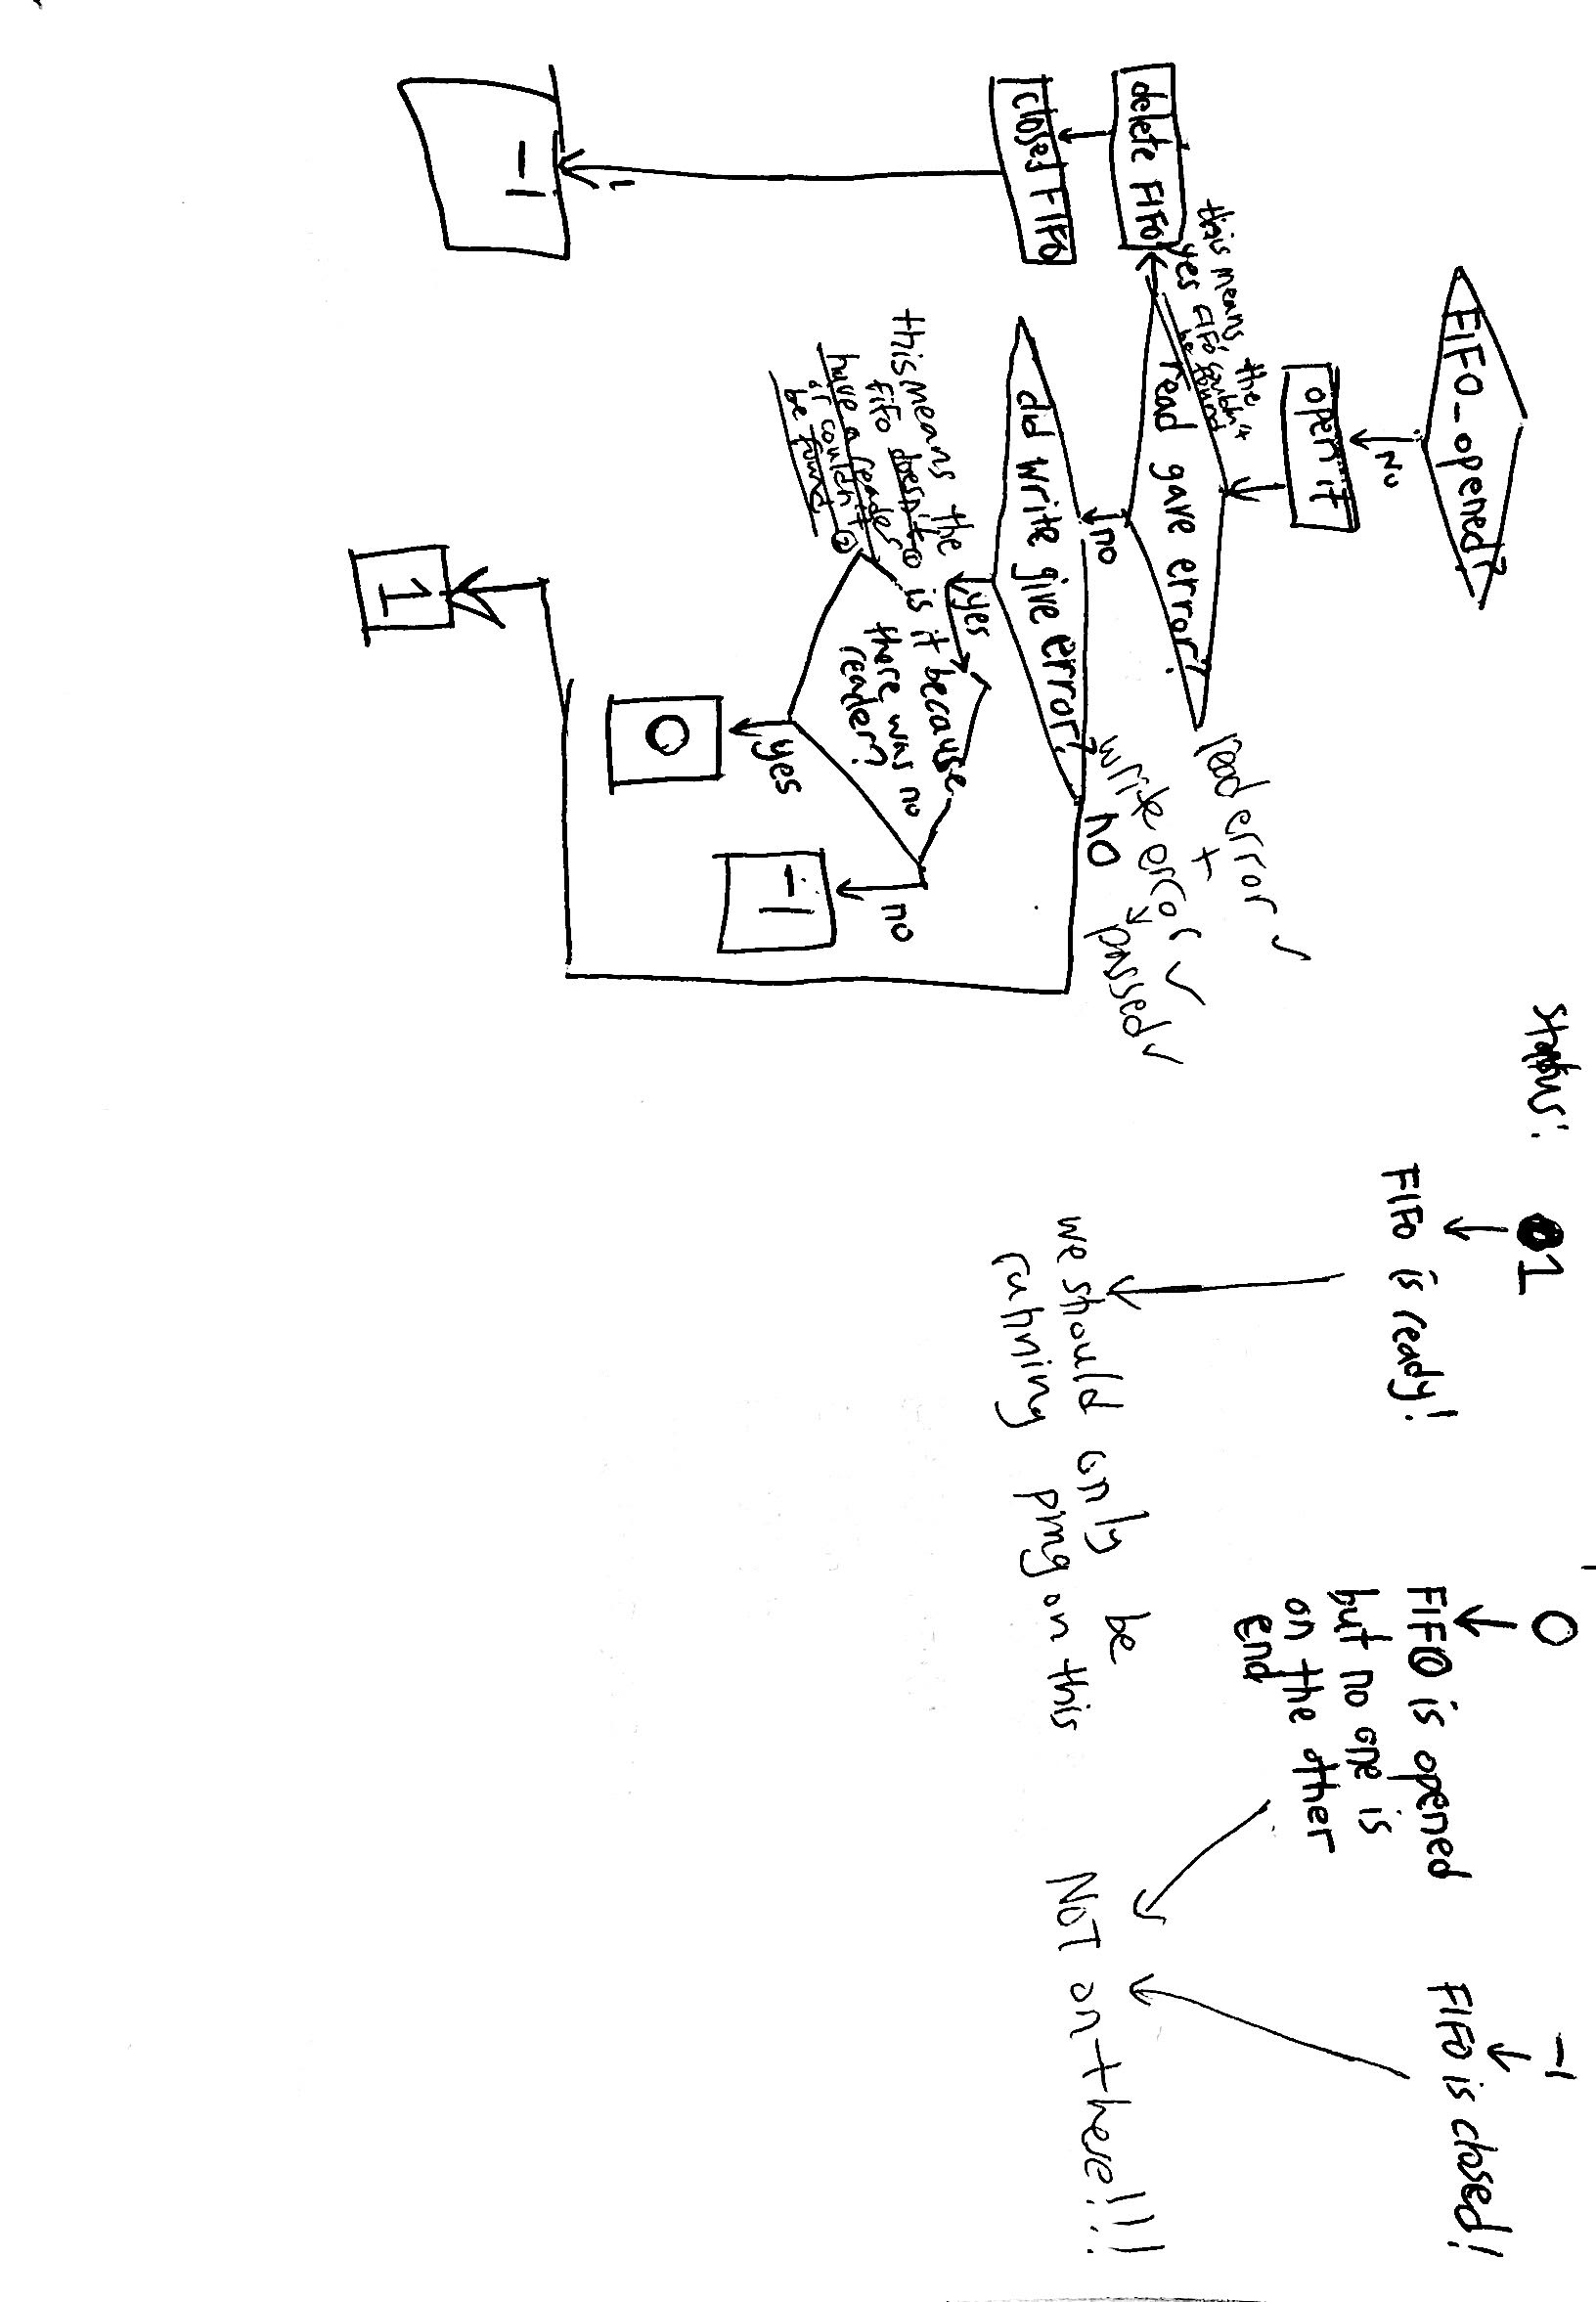 FIFO_opened?
No
open it
this means, the
FIFO couldn't
be found
yes
read gave error?
delete FIFO
closes FIFO
-1
no
read error ✓
+
write error ✓
passed ✓
did write give error?
no
yes
this means the
fifo doesn't ①
have a reader
or couldn't ②
be found
is it because
there was no
reader?
no
-1
yes
0
1
Status:
1
FIFO is ready!
we should only be
running ping on this
0
FIFO is opened
but no one is
on the other
end
-1
FIFO is closed!
NOT on there!!!